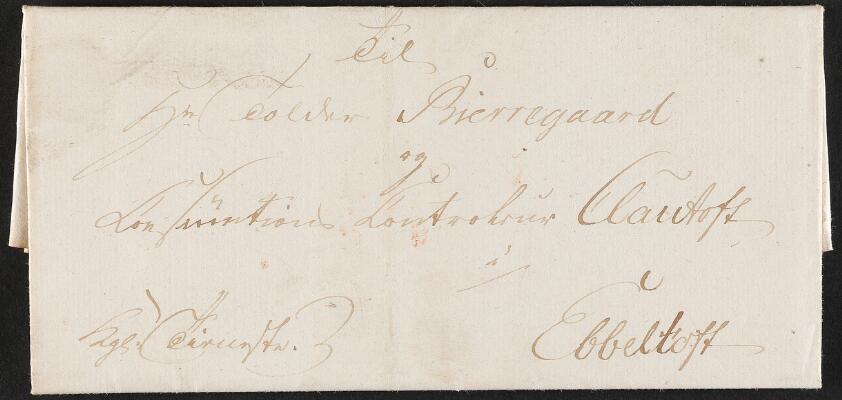 Til
Hr Tolder Bierregaard
og
Consumtions Controleur Clautoft
i
Kgl. Tieneste.
Ebbeltoft